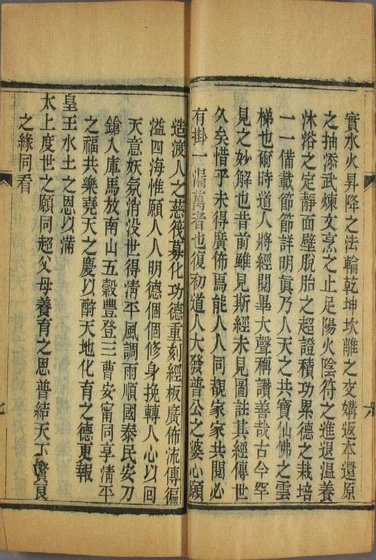 實水火昇降之法輪乾坤坎離之交媾返本還原
之抽添武煉文烹之止足陽火陰符之進退溫養
沐浴之定靜面壁脫胎之超證積功累德之栽培
一一備載節節詳明真乃人天之共寶仙佛之雲
梯也爾時道人將經閱畢大聲稱讚善哉古今罕
見之妙解也昔前雖見斯經未見圖註其經傳世
久矣惜乎未得廣佈焉能人人同觀家家共閱必
有掛一漏萬者也復初道人大發普公之婆心願
造渡人之慈筏募化功德重刻經板廣佈流傳徧
溢四海惟願人人明德個個修身挽轉人心以回
天意妖氛消没世得清平風調雨順國泰民安刀
鎗入庫馬放南山五穀豐登三曹安甯同享清平
之福共樂堯天之慶以酧天地化育之德更報
皇王水土之恩以滿
太上度世之願同超父母養育之恩普結天下賢良
之緣同看